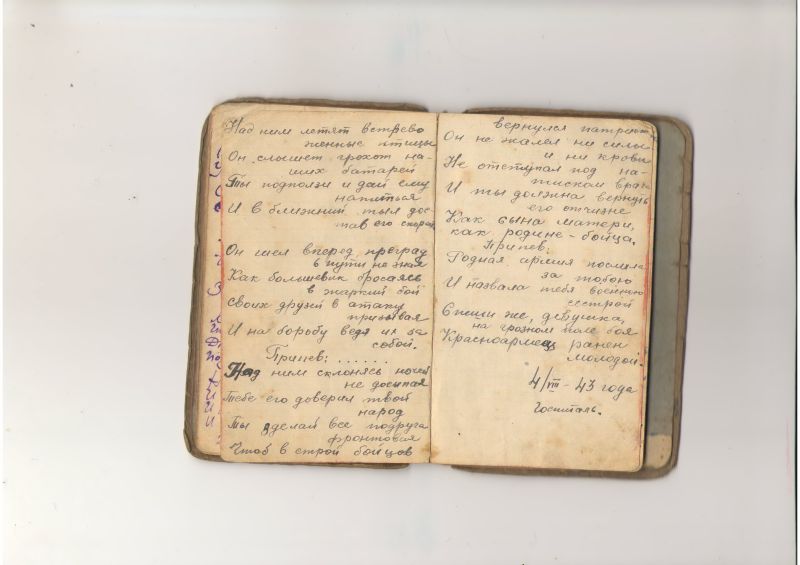 Над ним летят встрево
женные птицы
Он слышет грохот на-
ших батарей
Ты подползи и дай ему
напиться
И в ближний тыл дос-
тавь его скорей
Он шел вперед преград
в пути не зная
Как большевик бросаясь
в жаркий бой
Своих друзей в атаку
призывая
И на борьбу ведя их за
собой.
Припев: ......
Над ним склонясь ночей
не досыпая
Тебе его доверил твой
народ
Ты сделай все подруга
фронтовая
Чтоб в строй бойцов
вернулся патриот
Он не жалел ни силы
и ни крови
Не отступал под на-
тиском врага
И ты должна вернуть
его отчизне
Как сына матери,
как родине-бойца.
Припев:
Родная армия послала
за тобою
И назвала тебя военною
сестрой
Спеши же, девушка,
на грозном поле боя
Красноармеец ранен
молодой.
4/VIII-43 года
Госпиталь.